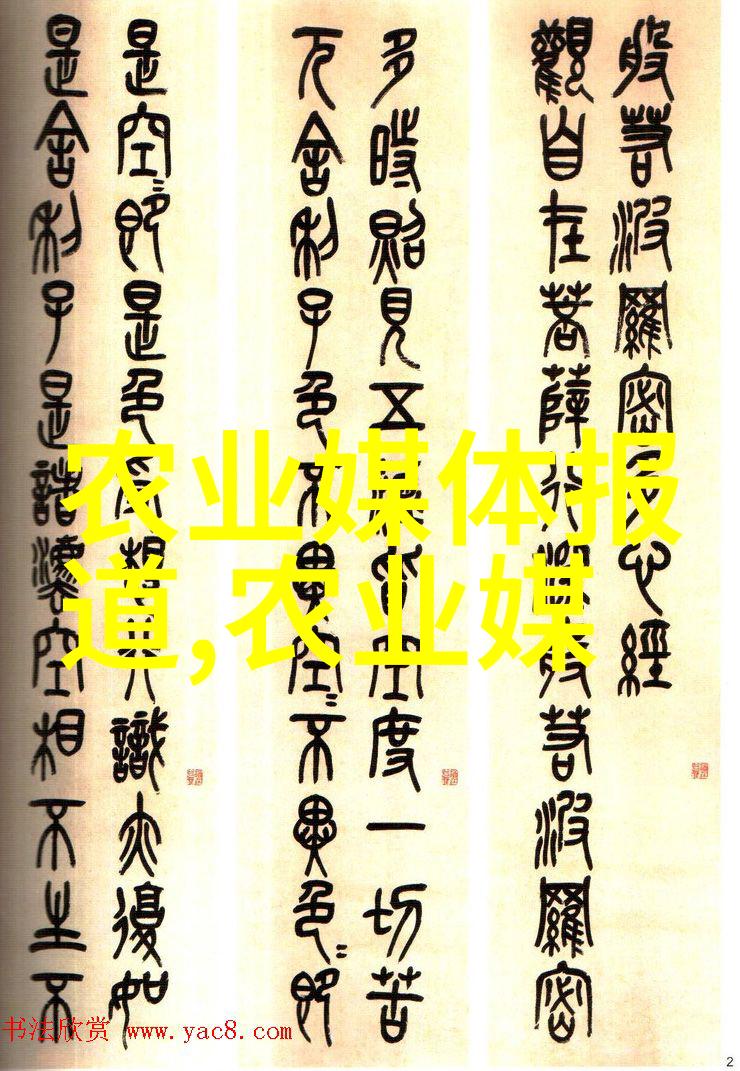 般若波羅密多心經
觀自在菩薩行深般若波羅密
多時照見五蘊皆空度一切苦
厄舍利子色不異空〻不異色〻即
是空〻即是色受想行識亦復如
是舍利子是諸灋空相不生不
农业媒体报
道,农业媒
书法欣赏 www.yac8.com
2